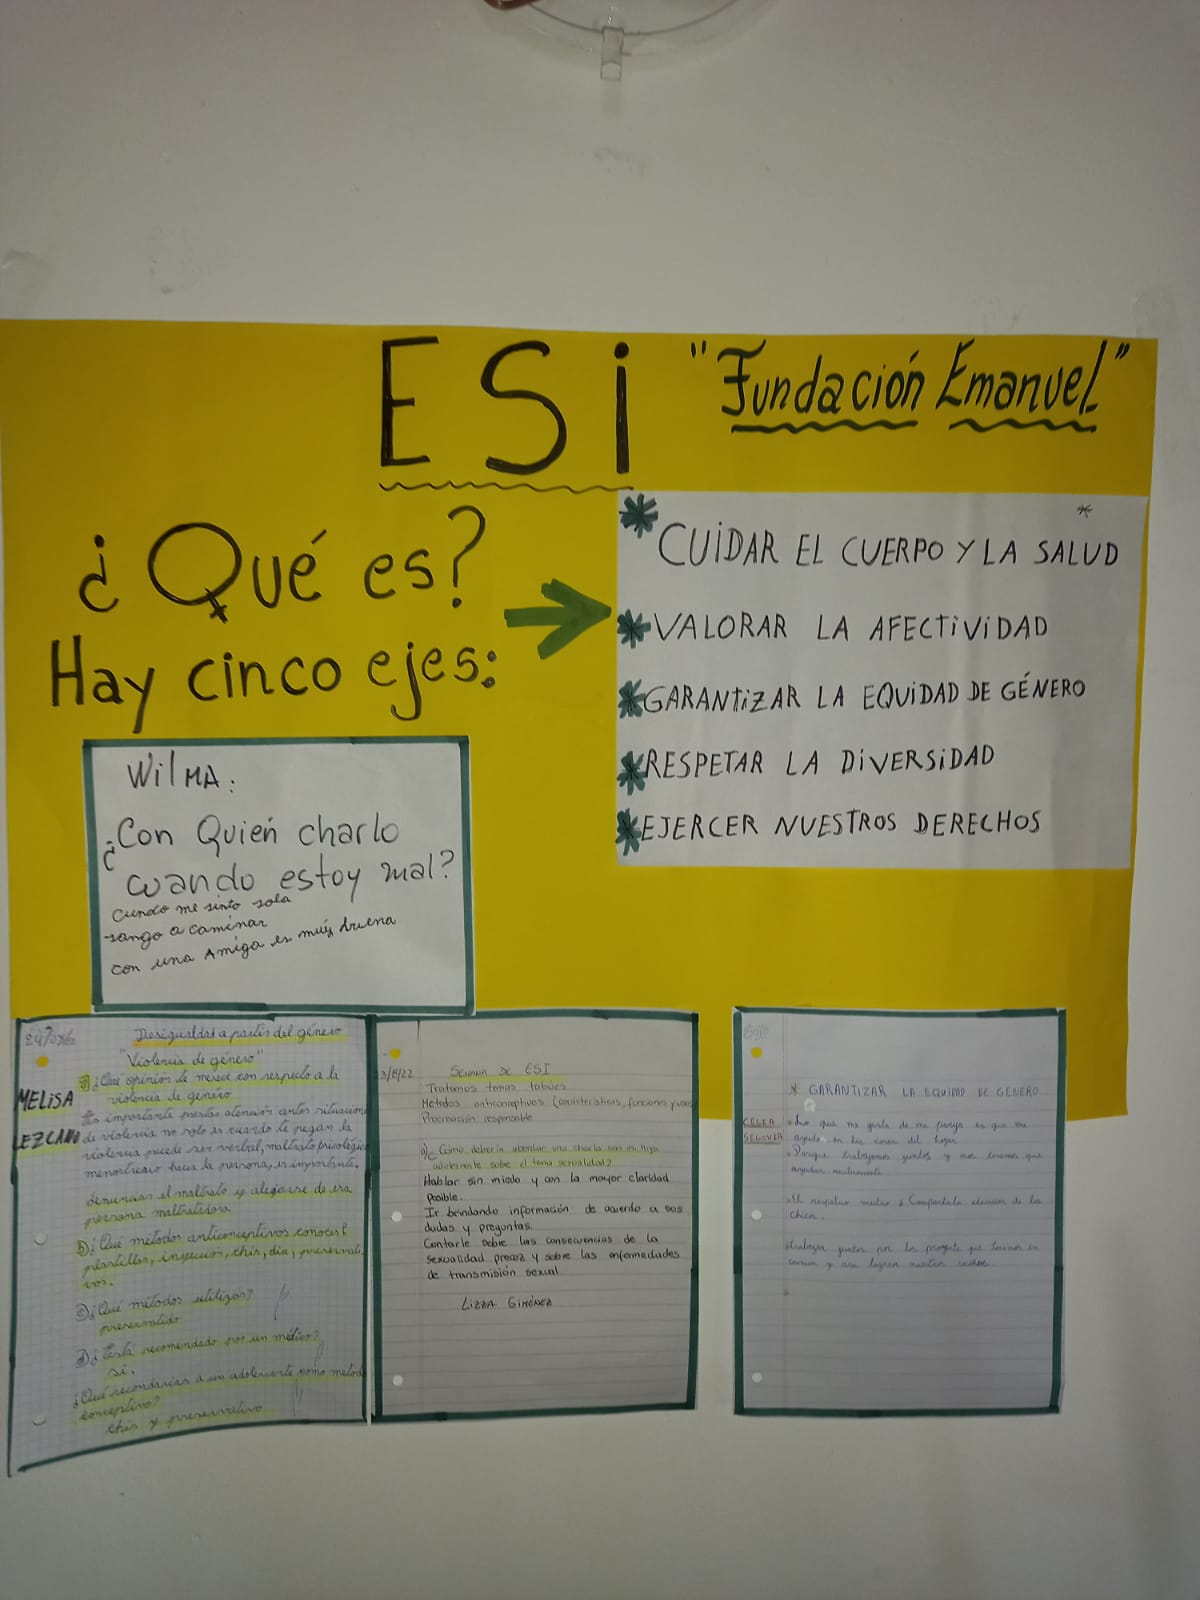 ESi
"Fundación Emanuel"
¿Qué es?
Hay cinco ejes:
* CUiDAR EL CUERPO Y LA SALUD *
* VALORAR LA AFECTiViDAD
* GARANTiZAR LA EQUiDAD DE GÉNERO
* RESPETAR LA DiVERSiDAD
* EJERCER NUESTROS DERECHOS
WilMA:
¿Con Quién charlo
cuando estoy mal?
Cundo me sinto sola
a caminar
con una Amiga es muy buena
MELiSA
LEZCANO
Desigualdad a partir del género
"Violencia de género"
a) ¿Qué opinión te merece con respecto a la
violencia de género
Es importante prestar atención antes situacione
de violencia no solo es cuando te pegan la
violencia puede ser verbal, maltrato psicológico
menosprecio hacia la persona, es importante
denunciar el maltrato y alejarse de esa
persona maltratadora
b) ¿Qué métodos anticonceptivos conoces?
pastillas, inyección, chip, diu, preservati
vos.
c) ¿Qué métodos utilizas?
preservatido
d) ¿Está recomendado por un médico?
si.
¿Qué recondarias a un adolescente como metodo
conceptivo?
chip y preservativo
SEMANA DE ESI
Tratamos temas tabúes
Métodos anticonceptivos (características, funciones y usos)
Procreación responsable
a) ¿Cómo debería abordar una charla con mi hijo
adolescente sobre el tema sexualidad?
Hablar sin miedo y con la mayor claridad
posible.
Ir brindando información de acuerdo a sus
dudas y preguntas.
Contarle sobre las consecuencias de la
sexualidad precoz y sobre las enfermedades
de transmisión sexual
LIZZA GIMÉNEZ
* GARANTIZAR LA EQUIDAD DE GENERO
CELIA
SEGOVIA
Lo que me gusta de mi pareja es que me
ayuda en las cosas del hogar
Porque trabajamos juntos y nos tenemos que
ayudar mutuamente
El respeto mutuo y Compartir la de los
chicos.
trabajar juntos por los proyectos que tenemos en
común y asi lograr nuestros